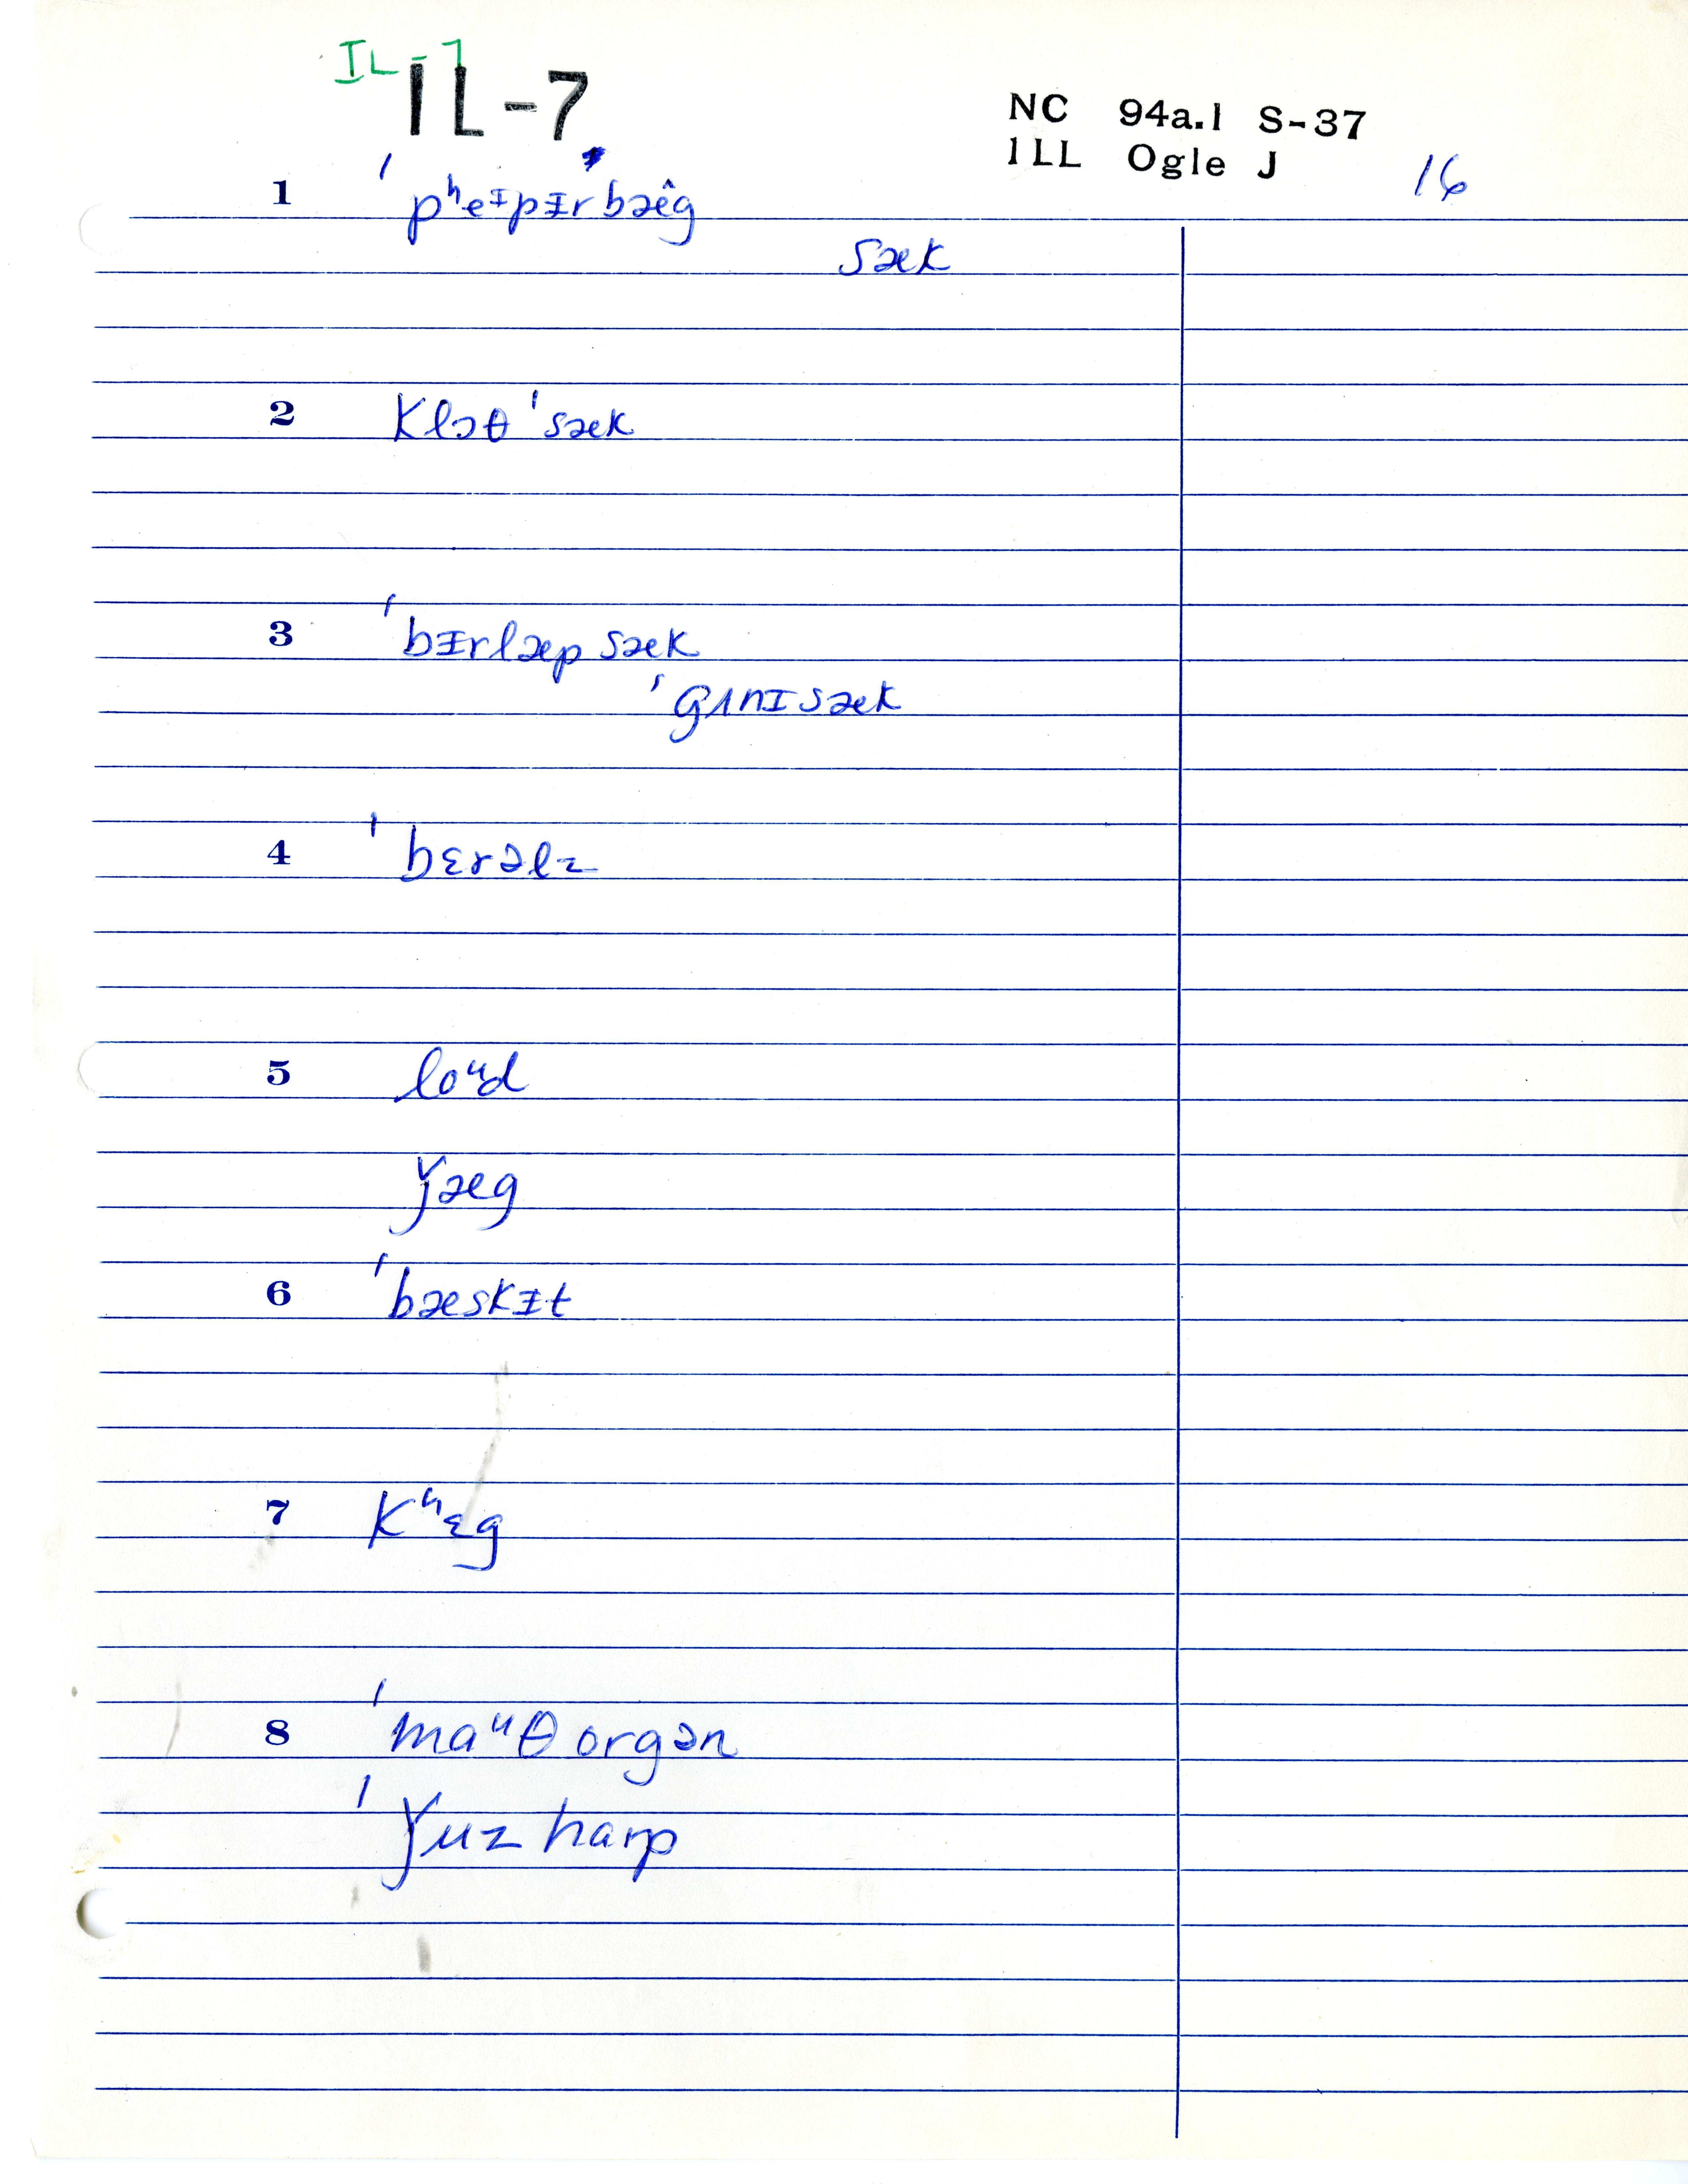 IL-7
IL-7
NC 94a.1 S-37
ILL Ogle J
16
1 ˈpʰeᵻpᵻrbæ̂g
sæk
2 klɔθˈsæk
3 ˈbᵻrlæp sæk
ˈgʌnɪsæk
4 ˈbɛrəlz
5 loᵘd
ǰæg
6 ˈbæskᵻt
7 kʰɛg
8 ˈmaᵘθorgən
ˈǰuzharp